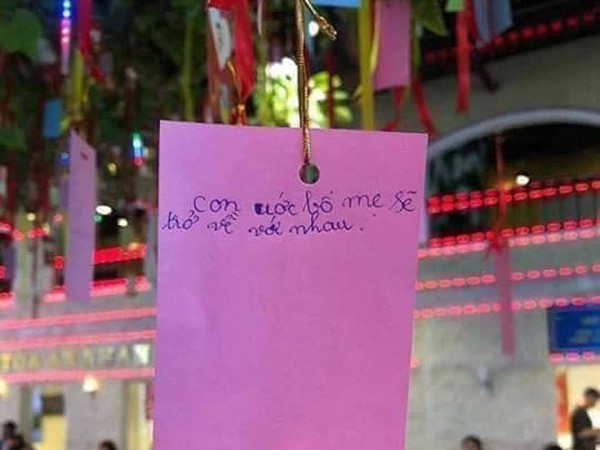 con ước bố mẹ sẽ
trở về với nhau.